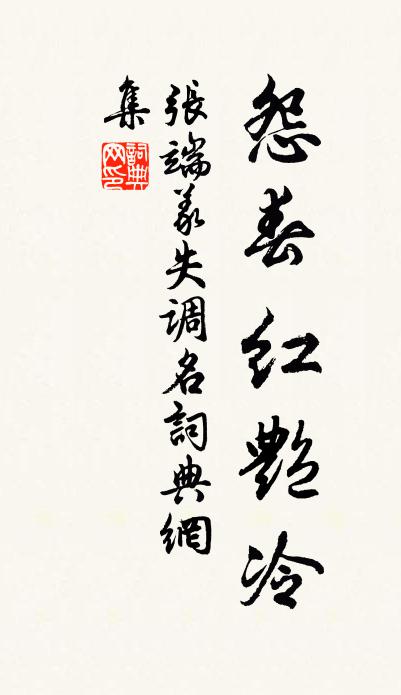 怨春红艷冷
張端义失调名詞典網
集
詞典网印